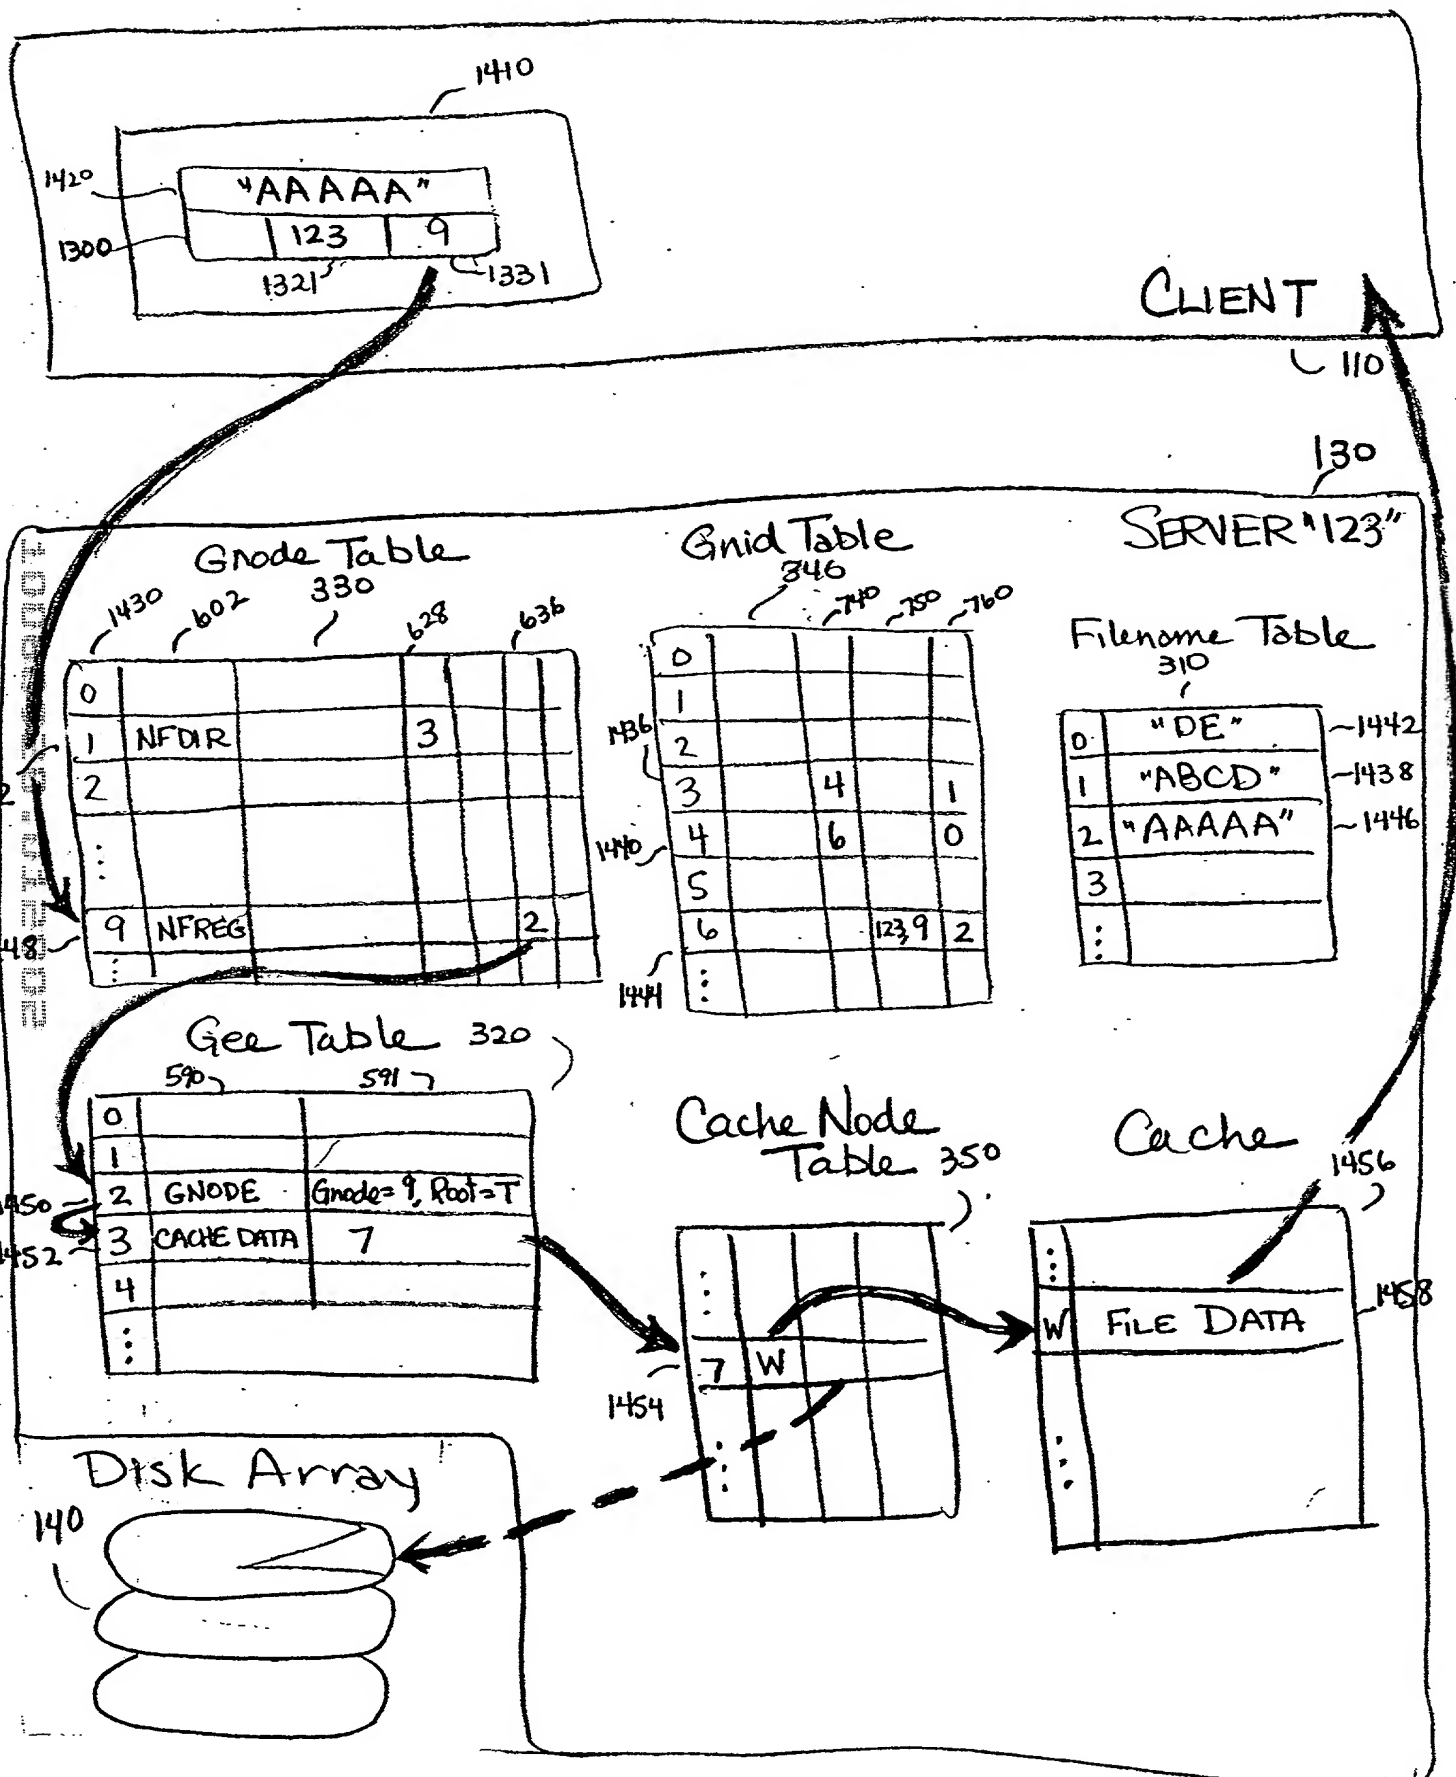 1410
1420
"AAAAA"
1300
123 9
1321
1331
CLIENT
110
130
SERVER "123"
Gnode Table
330
1430 602 628 636
0
1 NFDIR 3
2
9 NFREG 2
Gnid Table
346
740 750 760
0
1
1436
2
3 4 1
1440
4 6 0
5
6 123,9 2
1444
Filename Table
310
0 "DE" 1442
1 "ABCD" 1438
2 "AAAAA" 1446
3
Gee Table 320
590 591
0
1
1450
2 GNODE Gnode=9, Root=T
1452
3 CACHE DATA 7
4
Cache Node
Table 350
7 W
1454
Cache
1456
W FILE DATA
1458
Disk Array
140